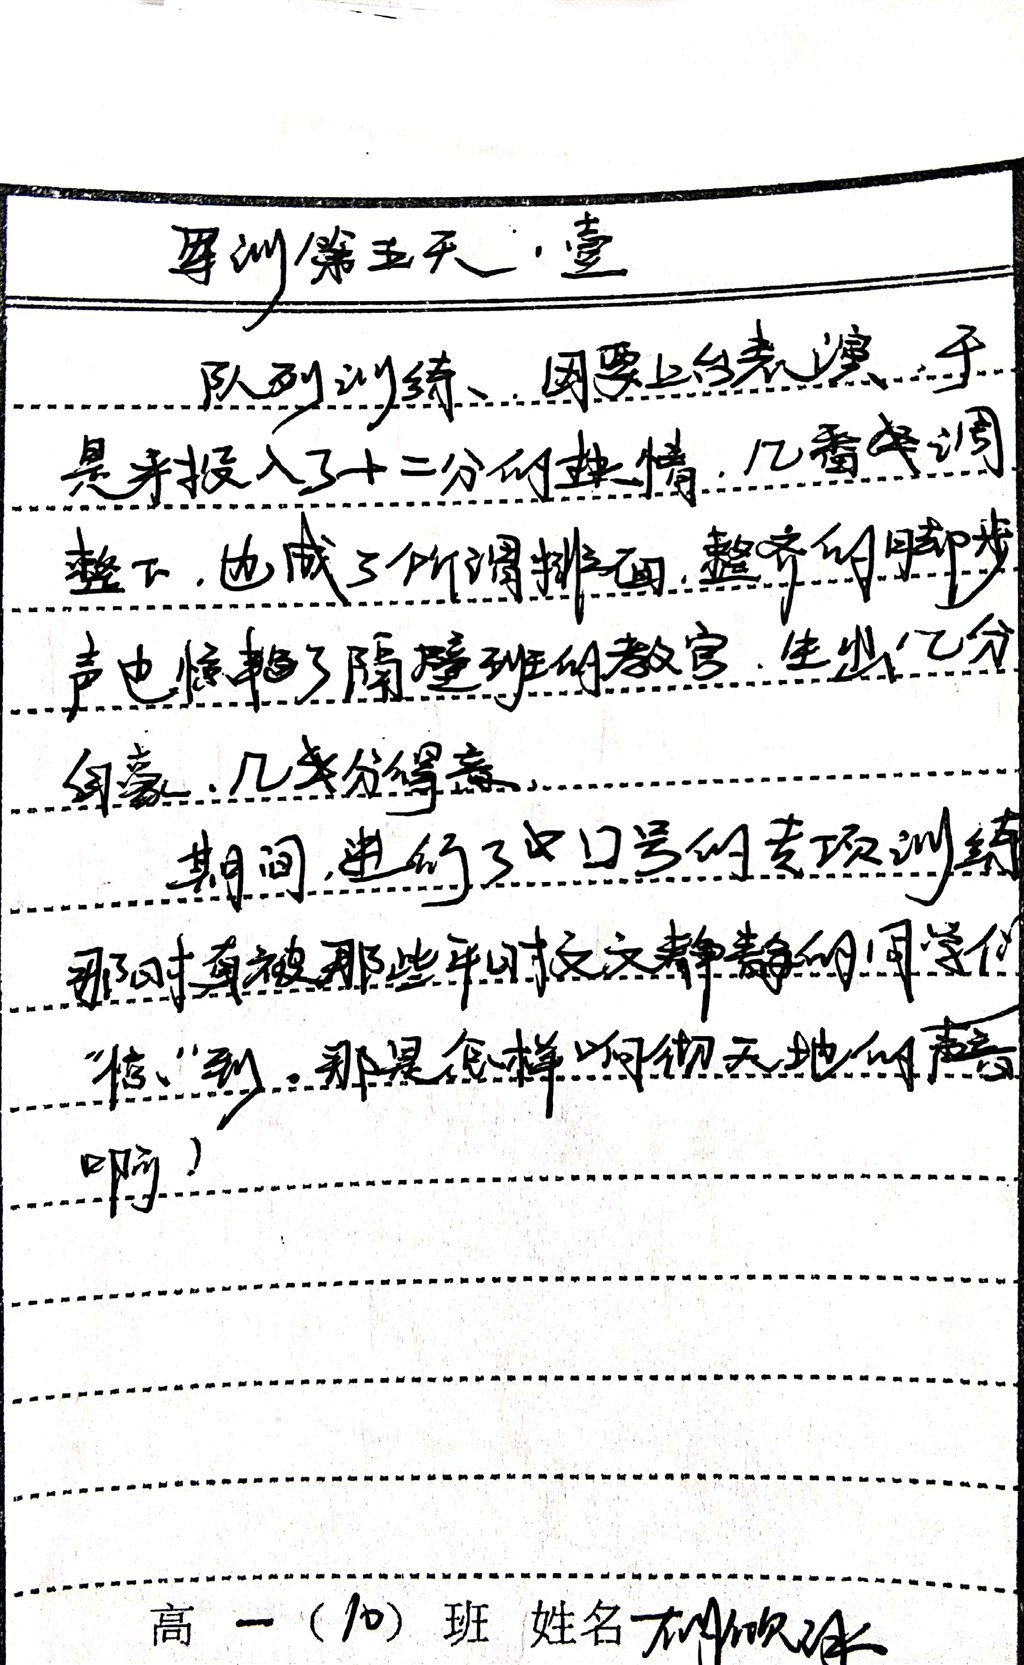 军训第五天·壹
队列训练、因要上台表演、于
是乎投入了十二分的热情，几番调
整下，也成了所谓排面，整齐的脚步
声也惊艳了隔壁班的教官，生出几分
自豪，几分得意。
期间，进行了口号的专项训练
那时真被那些平时文文静静的同学们
“惊”到，那是怎样响彻天地的声音
啊！
高一(10)班 姓名